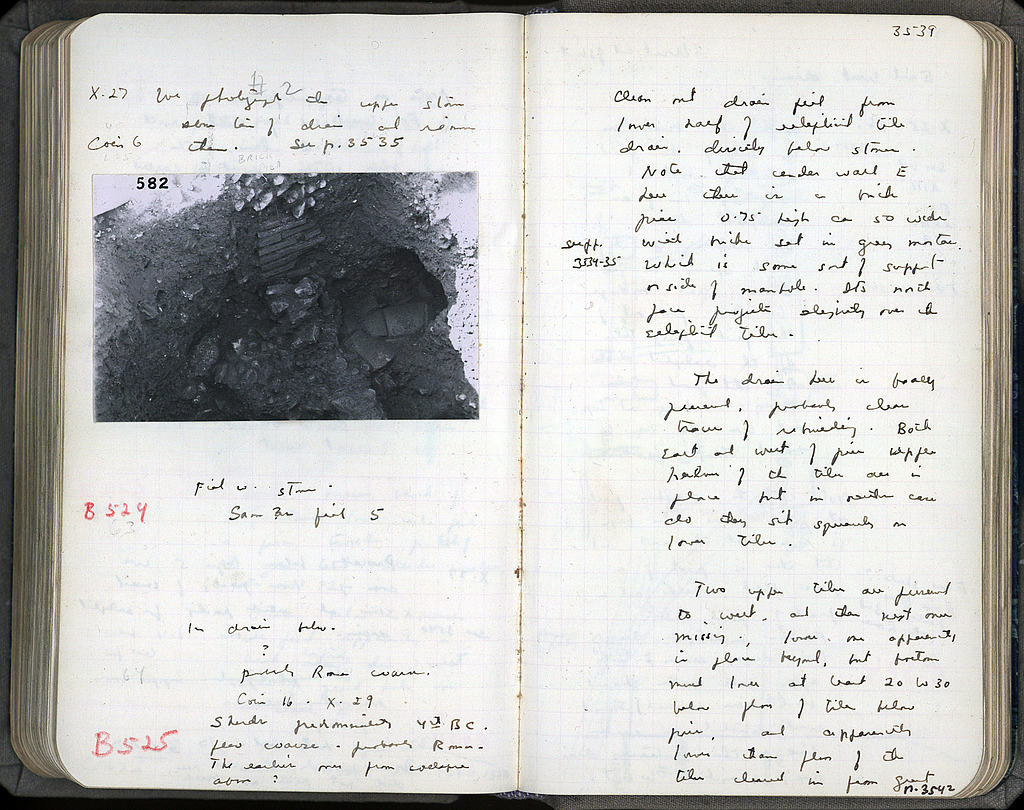 X.27 We photograph the upper stones
above line of drain and remove
Coin 6 them. See p. 3535
BRICK
582
Fill w. stones.
B 524
Same as fill 5
63
In drain below.
?
64
possibly Roman coarse.
Coin 16 . X.29
Sherds predominantly 4th BC.
few coarse - probably Roman.
B 525
The earlier ones from collapse
above?
3539
Clean out drain fill from
lower half of elliptical tile
drain, directly below stones.
Note that under wall E
here there is a brick
pier 0.75 high ca 50 wide
with bricks set in grey mortar.
see pp.
3534-35
which is some sort of support
on side of manhole. Its north
face projects slightly over the
elliptical tiles.
The drain here is poorly
preserved, probably clear
traces of rebuilding. Both
east and west of pier upper
halves of the tiles are in
place but in neither case
do they sit squarely on
lower tiles.
Two upper tiles are present
to west, and then next one
missing, lower one apparently
in place beyond, but bottom
must lower at least 20 to 30
below floor of tiles below
pier, and apparently
lower than floor of the
tiles cleared in from great
p. 3542